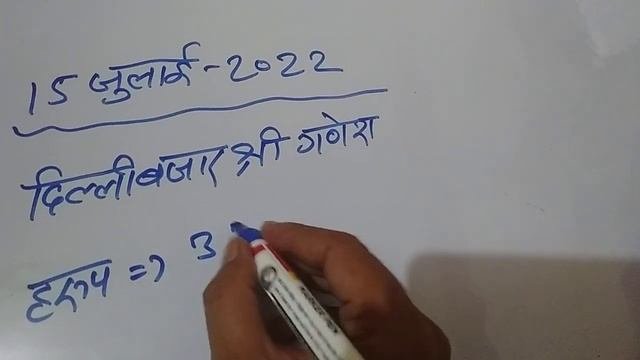 15 जुलाई - 2022
दिल्ली बजार श्री गणेश
हरूप => 3